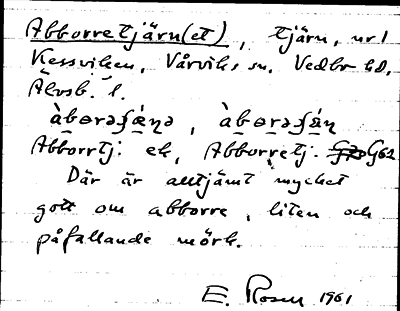 Abborretjärn(et), tjärn, nr 1
Kessviken, Vårviks sn. Vedbo hd,
Älvsb. l.
àbɵrəʃæ̀ṇə, àbɵrəʃæ̀ṇ
Abborrtj: ek, Abborretj. G62
Där är alltjämt mycket
gott om abborre, liten och
påfallande mörk.
E. Rosen 1961